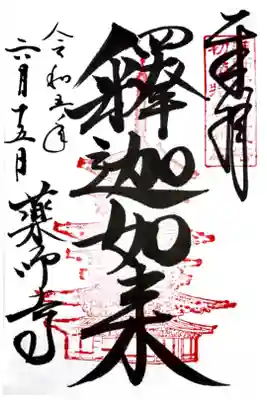 奉拝
釋迦如来
薬師寺
令和五年
六月十五日